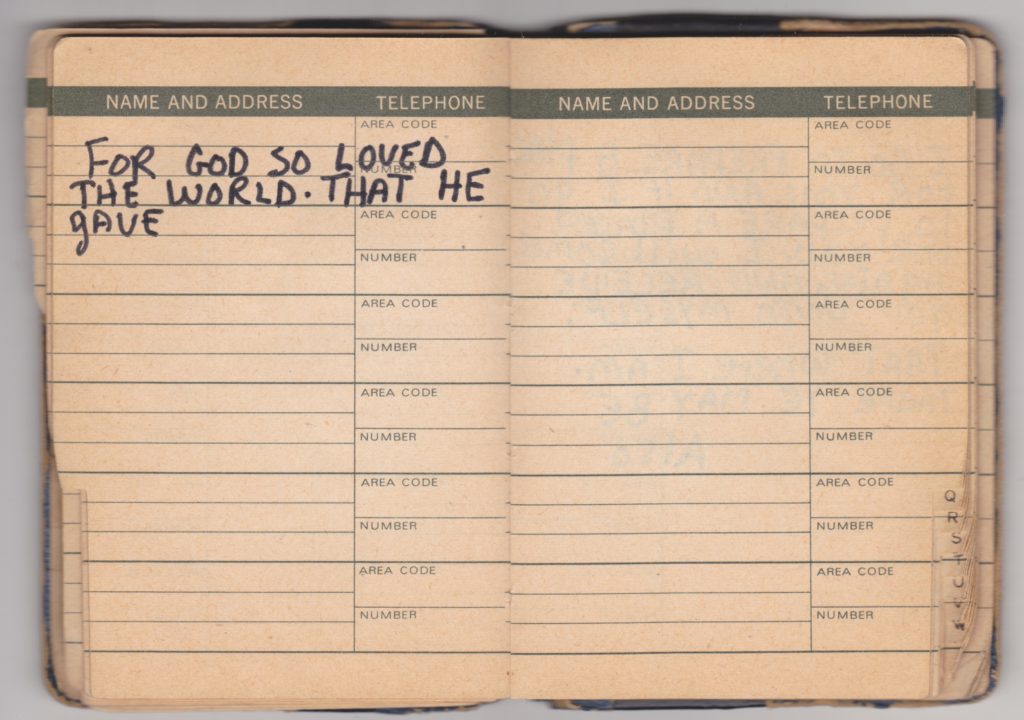 NAME AND ADDRESS TELEPHONE
AREA CODE
FOR GOD SO LOVED
NUMBER
THE WORLD. THAT HE
GAVE
AREA CODE
NUMBER
AREA CODE
NUMBER
AREA CODE
NUMBER
AREA CODE
NUMBER
AREA CODE
NUMBER
NAME AND ADDRESS TELEPHONE
AREA CODE
NUMBER
AREA CODE
NUMBER
AREA CODE
NUMBER
AREA CODE
NUMBER
AREA CODE
NUMBER
AREA CODE
NUMBER
Q
R
S
T
U